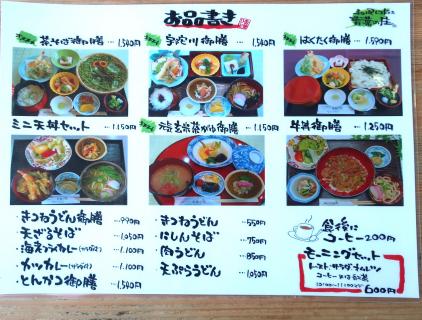 お品書き
茶そば御膳 … 1,540円
宇陀川御膳 … 1,540円
はくたく御膳 … 1,590円
ミニ天丼セット … 1,150円
御膳 … 1,150円
牛丼御膳 1,250円
・きつねうどん御膳 … 990円
・天ざるそば … 1,050円
・海老フライカレー(サラダ付) … 1,100円
・カツカレー(サラダ付) … 1,100円
・とんかつ御膳 … 1,540円
・きつねうどん … 550円
・にしんそば … 750円
・肉うどん … 850円
・天ぷらうどん … 1,050円
食後に
コーヒー200円
モーニングセット
トースト・サラダ・オムレツ
600円